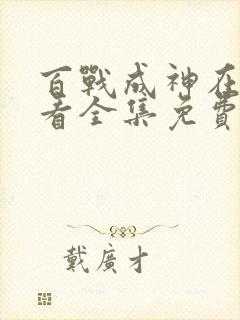 百戰成神在
看全集免費
戴廣才